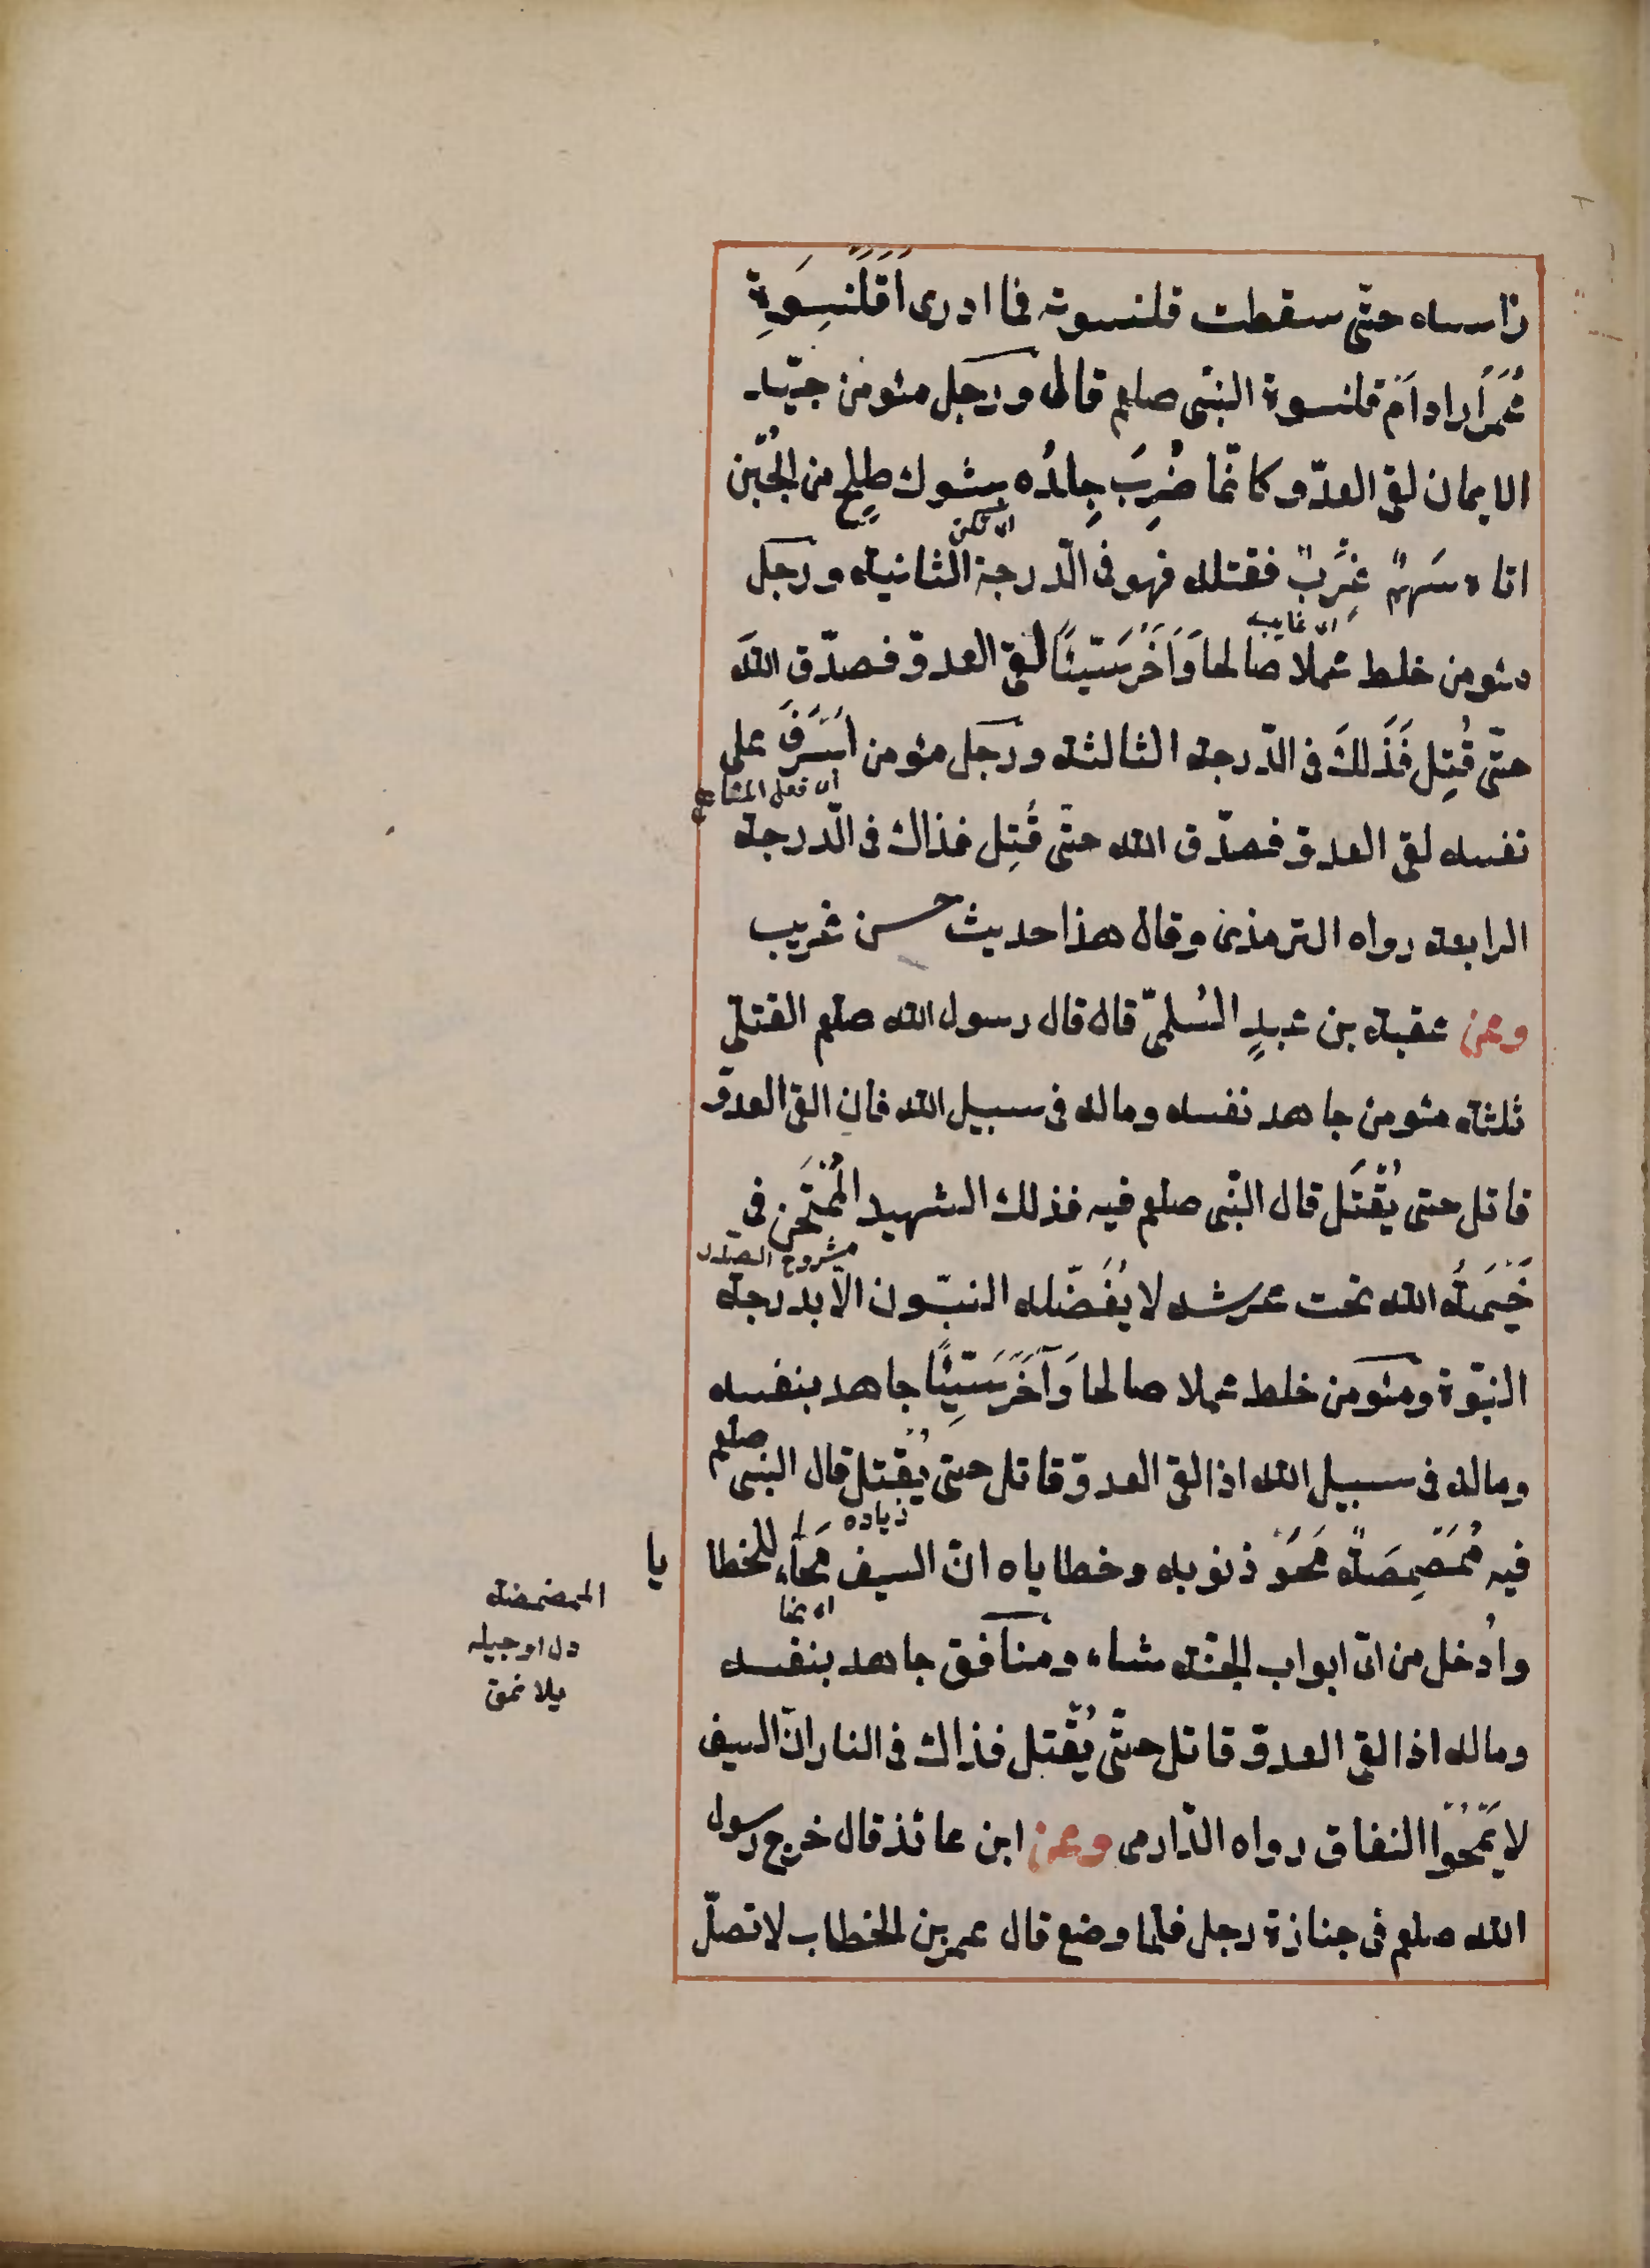 راسه حتّى سقطت قلنسوته فما ادرى اَقَلَنْسِوَةِ
عُمَرَ اَراد اَمْ قلنسوة النبّى صلعم قال ورجل مئومن جيّد
الايمان لقى العدّو كانّما ضُرِبَ جِلدُه بشوك طلحٍ من الجُبْن
اى تمكن
اتاه سَهمٌ غَرْبٌ فقتله فهو فى الدّرجة الثانية ورجل
اى غايب
مئومن خلط عملا صالحا وَاَخَرَ سَيّئًا لقى العدوّ فصدّق اللهَ
حتّى قُتِل فَذَلكَ فى الدّرجة الثالثة ورجل مئومن اَسْرَفَ على
اى فعل المناهى
نفسه لقى العدوّ فصدّق الله حتّى قُتِل فذاك فى الدّرجة
الرابعة رواه الترمذى وقال هذا حديث حسن غريب
وعن عقبة بن عبدٍ السُلمىّ قال قال رسول الله صلعم القتلى
ثلثة مئومن جاهد نفسه وماله فى سبيل الله فان القى العدوّ
قاتل حتى يُقْتَل قال النبّى صلعم فيه فذلك الشهيد المُمْتَحَن فى
مشروح الصدر
خَيْمَةُ الله تحت عرشه لا يُفَضّله النبيّون الا بدرجة
النبوّة ومئومن خلط عملا صالحا وَآخَرَ سَيِئًا جاهد بنفسه
وماله فى سبيل الله اذا لقى العدوّ قاتل حتى يُقتل قال النبى صلعم
زياده
فيه مُمَصْمِصَةٌ مَحَوْ ذنوبه وخطاياه انّ السيف مَحاء للخطا يا
اى نما
المضمضة
دل اوجيله
يلا نمق
واُدخل من اىّ ابواب الجنّة شاء ومنافق جاهد بنفسه
وماله اذا لقى العدوّ قاتل حتّى يُقْتل فذاك فى النار انّ السيف
لا يَمْحُوا النفاق رواه الدّارمى وعن ابن عائذ قال خرج رسول
الله صلعم فى جنازة رجل فلمّا وضع قال عمر بن الخطاب لا تصلّ